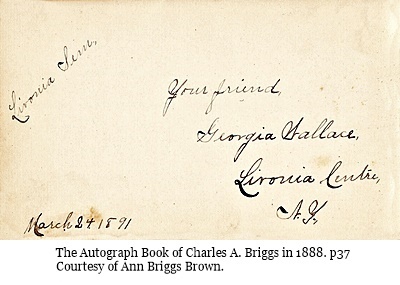 Livonia Sem.
Your friend,
Georgia Wallace,
Livonia Centre,
N.Y.
March 24 1891
The Autograph Book of Charles A. Briggs in 1888. p37
Courtesy of Ann Briggs Brown.